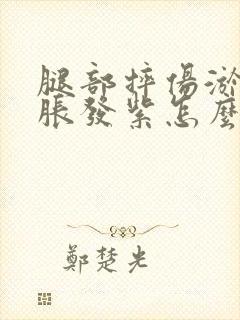 腿部摔傷淤
脹發紫怎麼
鄭楚光